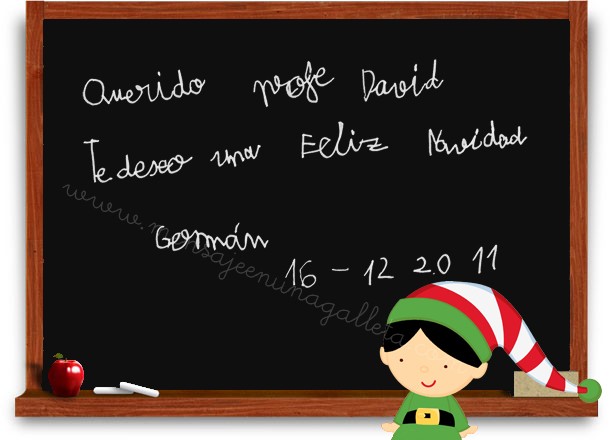 Querido profe David
Te deseo una Feliz Navidad
Germán
16 - 12 2011
www.mensajeenunagalleta.com